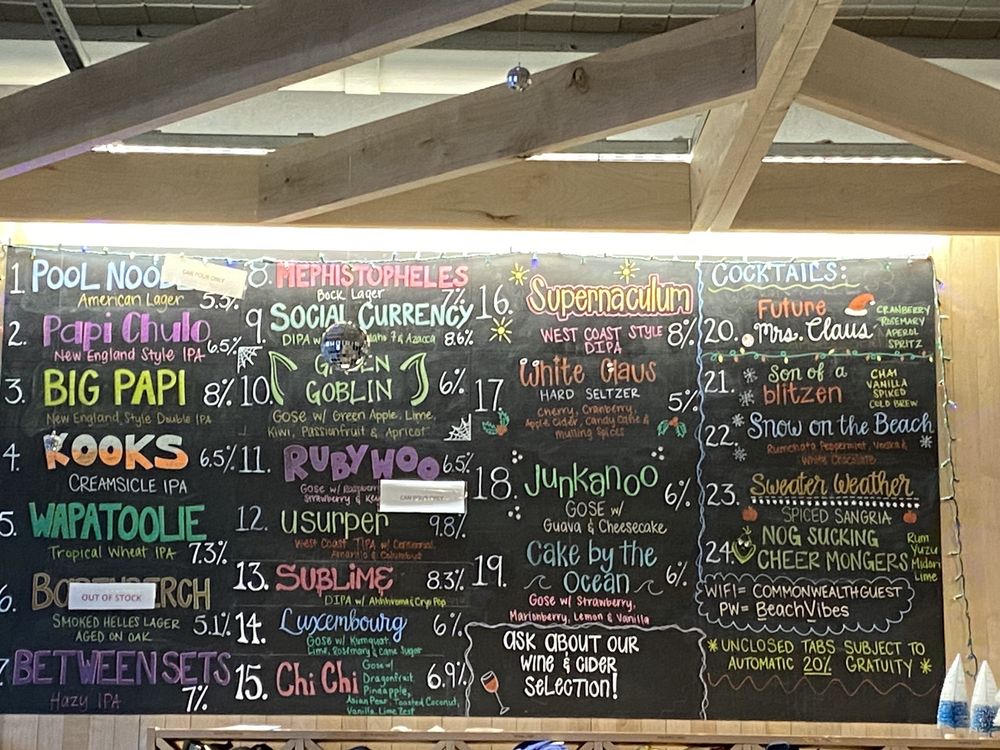 1. POOL NOO
CAN POUR ONLY
American Lager 5.5%
2. Papi Chulo
New England Style IPA 6.5%
3. BIG PAPI 8%
New England Style Double IPA
4. KOOKS 6.5%
CREAMSICLE IPA
5. WAPATOOLIE
Tropical Wheat IPA 7.3%
6.
OUT OF STOCK
SMOKED HELLES LAGER
AGED ON OAK 5.1%
7. BETWEEN SETS
Hazy IPA 7%
8. MEPHISTOPHELES
Bock Lager 7%
9. SOCIAL CURRENCY
DIPA & Azacca 8.6%
10. GREEN
GOBLIN 6%
GOSE w/ Green Apple, Lime,
Kiwi, Passionfruit & Apricot
11. RUBY WOO 6.5%
Gose w/
Strawberry &
CAN POUR ONLY
12. usurper 9.8%
West Coast TIPA w/ Centennial,
Amarillo & Columbus
13. SUBLIME 8.3%
DIPA w/ Ahhhroma & Cryo Pop
14. Luxembourg 6%
GOSE w/ Kumquat,
Lime, Rosemary & Cane Sugar
15. Chi Chi 6.9%
Gose w/
Dragonfruit
Pineapple,
Asian Pear, Toasted Coconut,
Vanilla, Lime Zest
16. Supernaculum
WEST COAST STYLE 8%
DIPA
17. White Claus
HARD SELTZER 5%
Cherry, Cranberry,
Apple Cider, Candy Cane &
Mulling Spices
18. Junkanoo 6%
GOSE w/
Guava & Cheesecake
19. Cake by the
Ocean 6%
GOSE w/ Strawberry,
Marionberry, Lemon & Vanilla
ASK ABOUT OUR
WINE & CIDER
SELECTION!
COCKTAILS:
20. Future
Mrs. Claus
CRANBERRY
ROSEMARY
APEROL
SPRITZ
21. Son of a
blitzen
CHAI
VANILLA
SPIKED
COLD BREW
22. Snow on the Beach
Rumchata Peppermint, Vodka &
White Chocolate
23. Sweater Weather
SPICED SANGRIA
24. NOG SUCKING
CHEER MONGERS
Rum
Yuzu
Midori
Lime
WIFI= COMMONWEALTHGUEST
PW= BeachVibes
*UNCLOSED TABS SUBJECT TO
AUTOMATIC 20% GRATUITY*